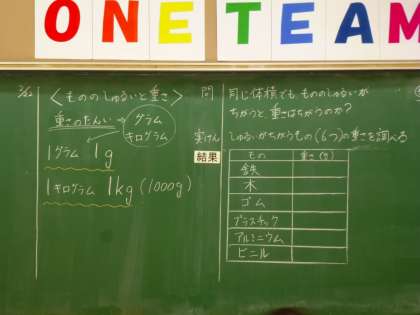 ONE TEAM
<もののしゅるいと重さ>
重さのたんい → グラム
キログラム
1グラム 1g
1キログラム 1kg (1000g)
問
同じ体積でも、もののしゅるいが
ちがうと、重さはちがうのか?
実けん
しゅるいがちがうもの(6つ)の重さを調べる
結果
もの 重さ(g)
鉄
木
ゴム
プラスチック
アルミニウム
ビニル